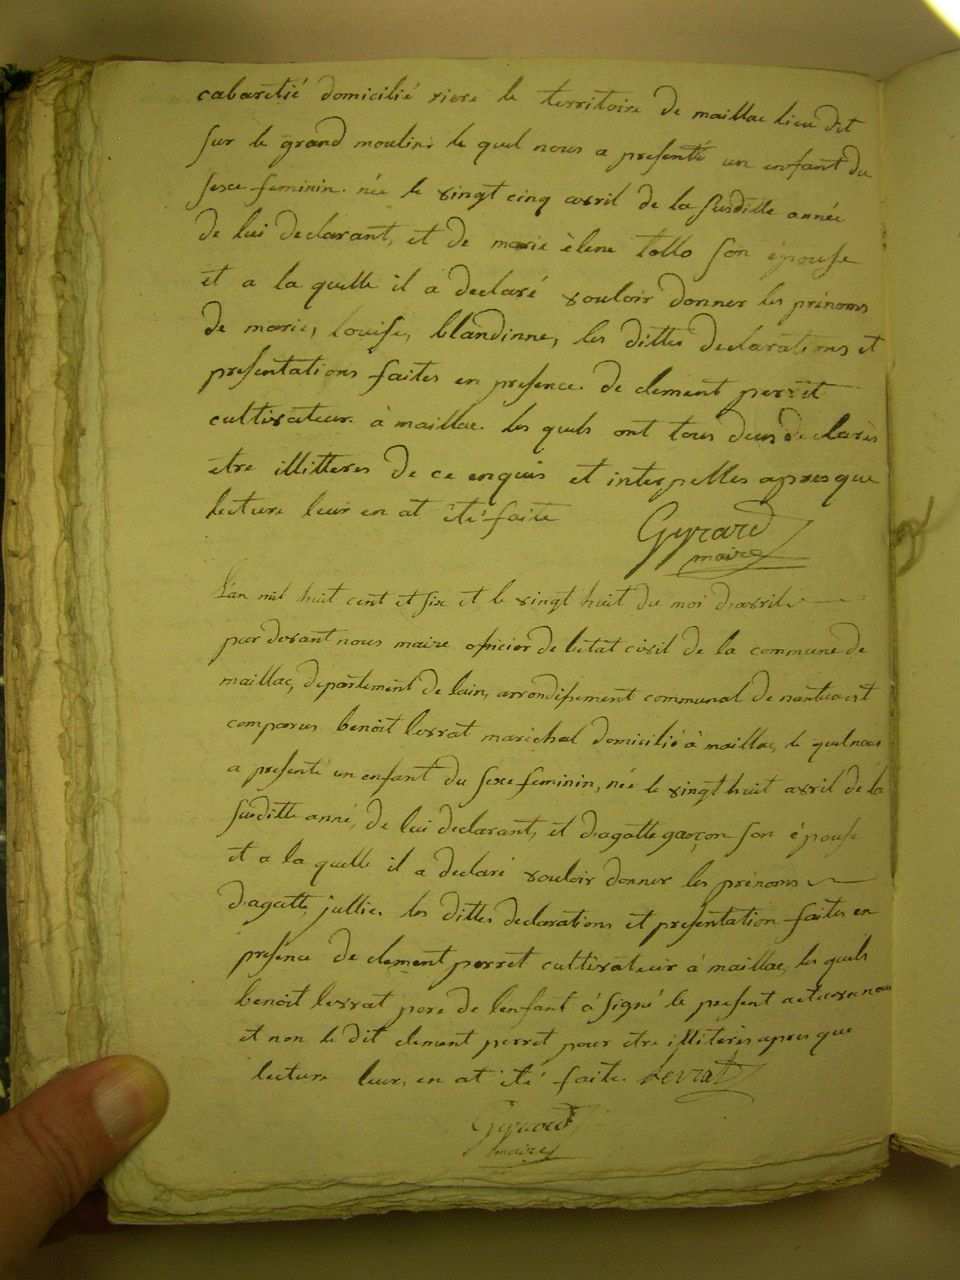 cabaretié domicilié riere le territoire de maillac lieu dit
sur le grand moulin. le quel nous a presenté un enfant du
sexe feminin. née le vingt cinq avril de la susditte année
de lui declarant, et de marie èlene tollo son épouse
et a la quelle il a declaré vouloir donner les prénoms
de marie, louise, blandinne, les dittes declarations et
presentations faites en presence de clement perret
cultivateur à maillac. les quels ont tous deux declarés
etre illitteres de ce enquis et interpelles apres que
lecture leur en at été faite
Gyrard
maire
L'an mil huit cent et six et le vingt huit du moi d'avril
par devant nous maire oficier de l'etat civil de la commune de
maillac, departement de lain, arrondissement communal de nantua est
comparus benoit levrat marechal domicilié à maillac, le quel nous
a presenté un enfant du sexe feminin, née le vingt huit avril de la
susditte anné, de lui declarant, et d'agatte garçon son épouse
et a la quelle il a declaré vouloir donner les prénoms
d'agatte, jullie. les dittes declarations et presentation faites en
presence de clement perret cultivateur à maillac, les quels
benoit levrat pere de l'enfant à signé le present acte avec nous
et non le dit clement perret pour etre illiteres apres que
lecture leur, en at été faite. Levrat
Gyrard
maire